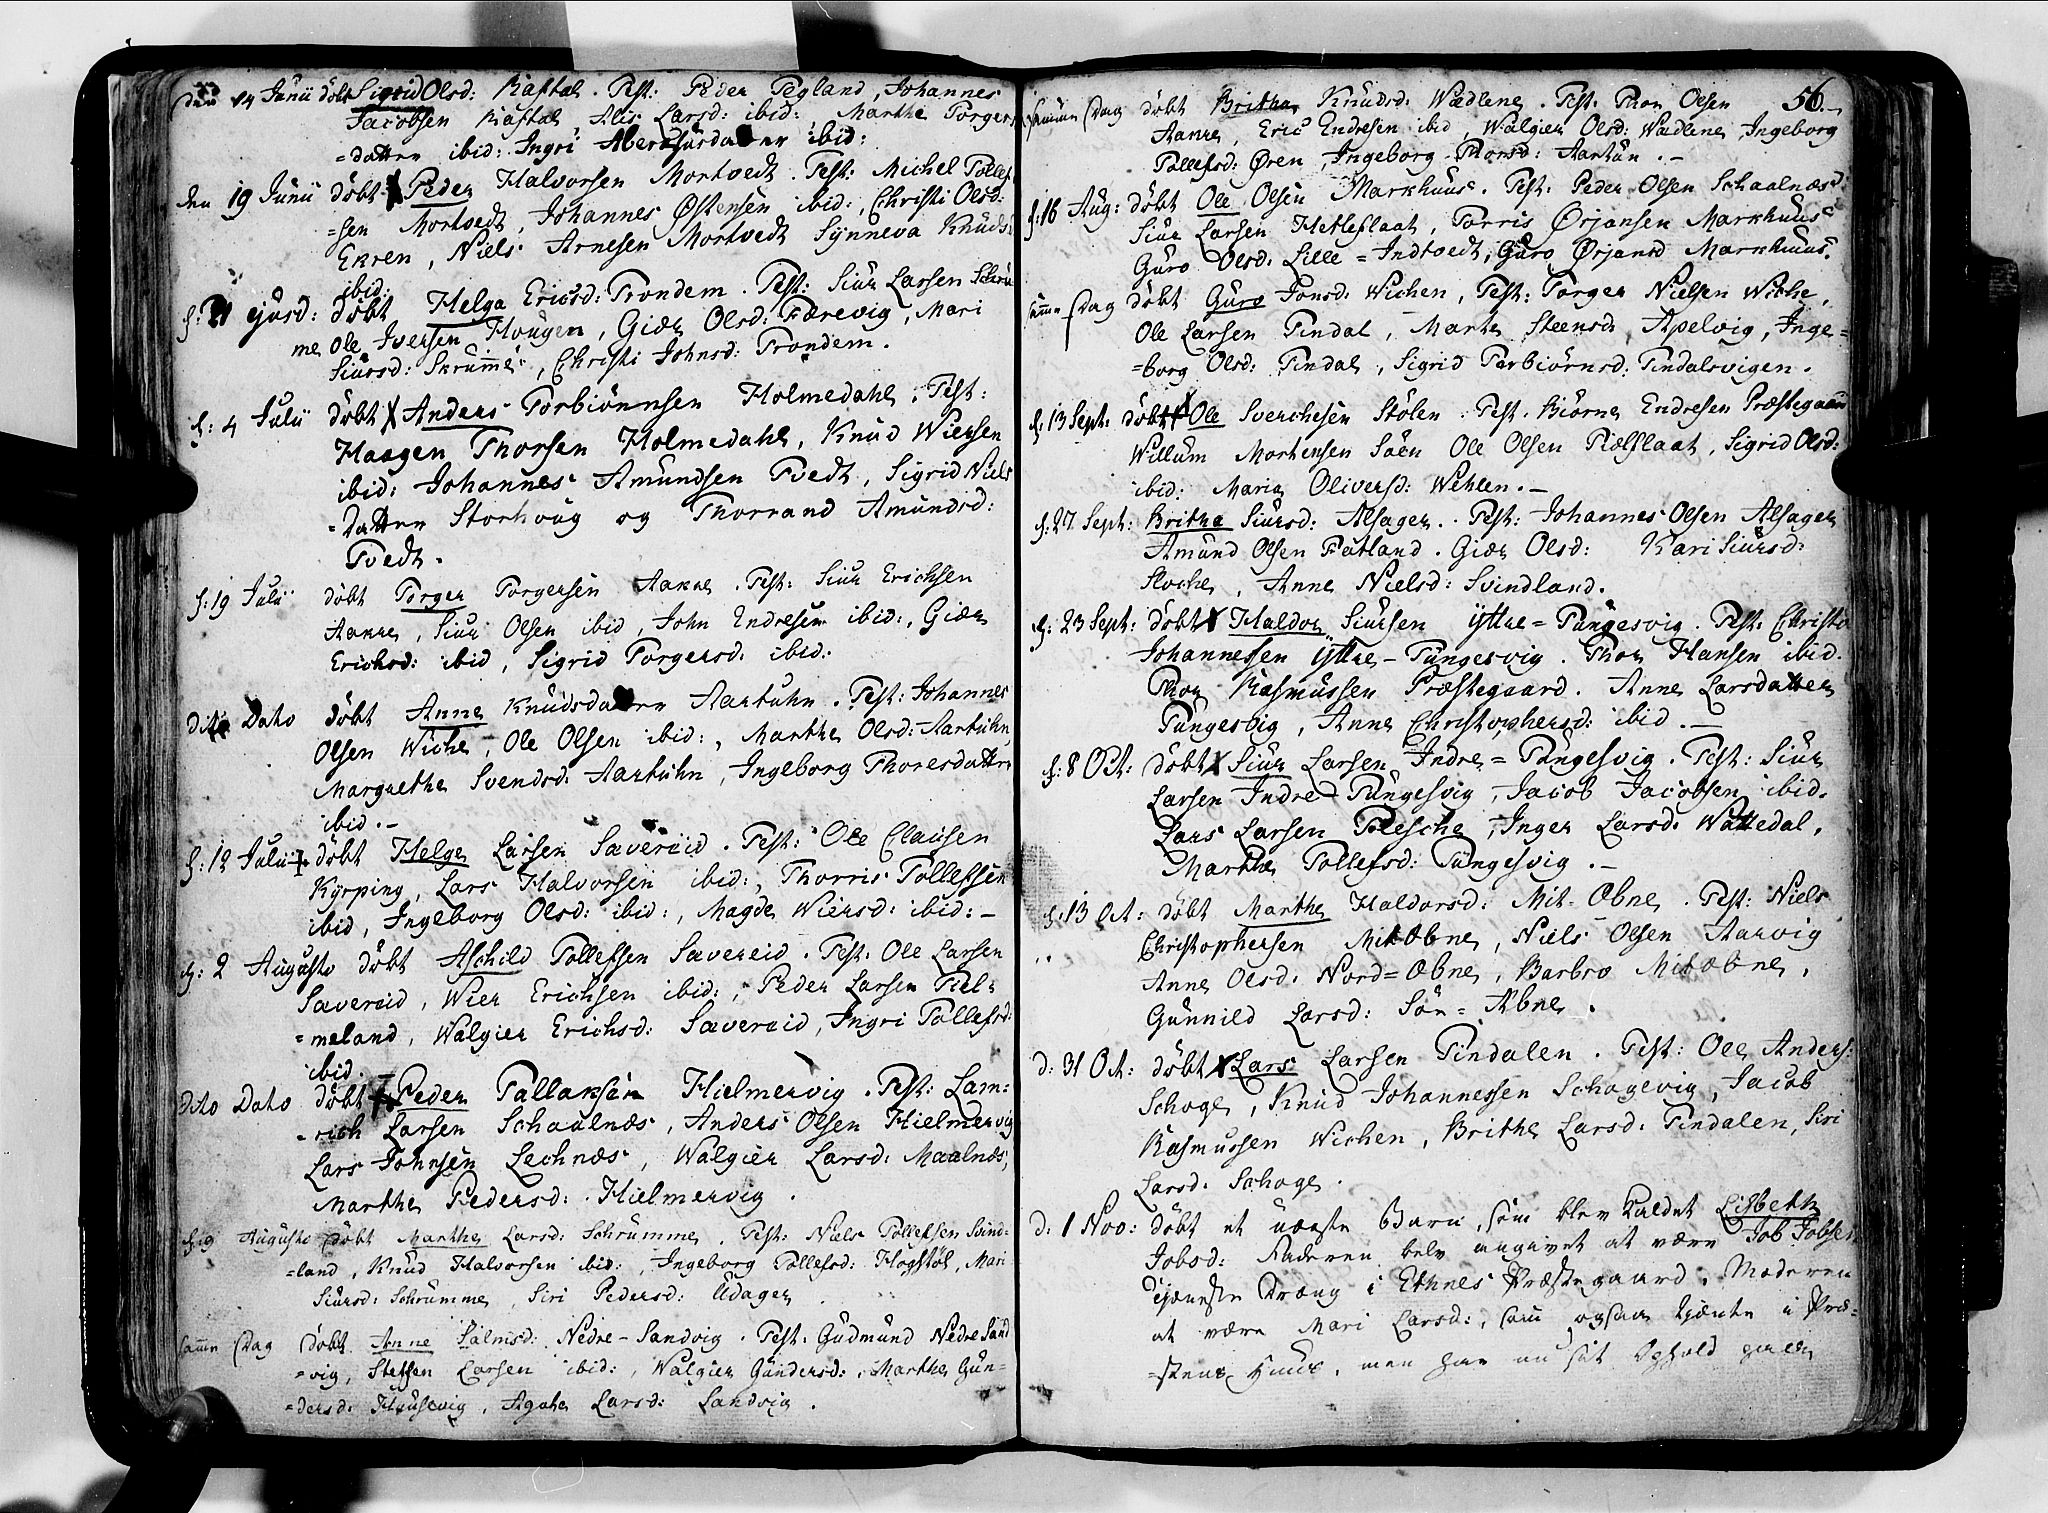 den 14 Junii döbt Sigrid Olsd: Raftal. Test: Peder Tegland, Johannes
Jacobsen Raftal Alis Larsd: ibid: Marthe Torgers
=datter ibid: Ingri ibid:
den 19 Junii döbt Peder Halvorsen Mortvedt. Test: Michel Tollef
=sen Mortvedt, Johannes Østensen ibid:, Christi Olsd:
Ekren, Niels Arnesen Mortvedt Synneva Knuds
ibid:
d: 21 ejusd: döbt Helga Ericsd: Trondem. Test: Siur Larsen Skrü
me Ole Iversen Hougen, Giær Olsd: Færevig, Mari
Siursd: Skrüme, Christi Johnsd: Trondem.
d: 4 Julii döbt Anders Torbiönnsen Holmedahl. Test:
Haagen Thorsen Holmedahl, Knud Wiersen
ibid: Johannes Amundsen Tvedt, Sigrid Niels
=datter Storhoug og Thorrand Amundsd:
Tvedt.
d: 19 Julii döbt Torger Torgersen Aakre. Test: Siur Erichsen
Aakre, Siur Olsen ibid, John Endresen ibid:, Giær
Erichsd: ibid, Sigrid Torgersd: ibid:
Dito Dato döbt Anne Knudsdatter Aartuhn. Test: Johannes
Olsen Wiche, Ole Olsen ibid:, Marthe Olsd: Aartuhn
Margrethe Svendsd: Aartuhn, Ingeborg Thoresdatter
ibid.-
d: 12 Julii döbt Helge Larsen Savereid. Test: Ole Clausen
Kyrping, Lars Halvorsen ibid:, Thorris Tollefsen
ibid, Ingeborg Olsd: ibid:, Magde Wiersd: ibid:-
d: 2 Augusto döbt Aschild Tollefsen Savereid. Test: Ole Larsen
Savereid, Wier Erichsen ibid:, Peder Larsen Fiel=
=meland, Walgier Erichsd: Savereid, Ingri Tollefsd:
ibid.
Dito Dato döbt Peder Tallaksen Hielmervig. Test: Lam:
=rich Larsen Schaalnæs, Anders Olsen Hielmervig
Lars Johnsen Lechnæs, Walgier Larsd: Maalnæs,
Marthe Pedersd: Hielmervig.
d: 9 Augusto döbt Marthe Larsd: Schrumme. Test: Niels Tollefsen Svind=
=land, Knud Halvorsen ibid:, Ingeborg Tollefsd: Hogstöl, Mari
Siursd: Schrumme, Siri Pedersd: Udager.
samme Dag döbt Anne Salmisd: Nedre-Sandvig. Test: Gudmund Nedre Sand
=vig, Steffen Larsen ibid:, Walgier Gundersd:, Marthe Gun=
=dersd: Hausevig, Agathe Larsd: Sandvig.
56.
samme Dag döbt Britha Knudsd: Wadlene. Test: Thor Olsen
Aakre, Eric Endresen ibid, Walgier Olsd: Wadlene, Ingeborg
Tollefsd: Øren, Ingeborg Thorsd: Aartun.-
d: 16 Aug: döbt Ole Olsen Markhuus. Test: Peder Olsen Schaalnæs
Siur Larsen Hetleflaat, Torris Ørjansen Markhuus
Guro Olsd: Lille=Indtvedt, Guro Ørjansd Markhuus.
samme Dag döbt Guro Jonsd: Wichen, Test: Torger Nielsen Wiche,
Ole Larsen Tindal, Marte Steensd. Apelvig, Inge=
=borg Olsd: Tindal, Sigrid Torbiörnsd: Tindalsvigen.
d: 13 Sept: döbt Ole Sverchesen Stölen. Test. Biörne Endresen Præstegaard
Willum Mortensen Saen Ole Olsen Kielflaat, Sigrid Olsd:
ibid: Maria Oliversd: Wehlen.-
d: 27. Sept: Britha Siursd: Alsager. Test: Johannes Olsen Alsager
Amund Olsen Fatland. Giær Olsd: Kari Siursd:
Stoche, Anne Nielsd: Svindland.
d: 23 Sept: döbt Haldor Siursen Yttre=Tungesvig. Test: Christo
Johannessen Yttre-Tungesvig. Thor Hansen ibid.
Thor Rasmussen Præstegaard. Anne Larsdatter
Tungesvig, Anne Christophersd: ibid.-
d: 8 Oct: döbt Siur Larsen Indre=Tungesvig. Test: Siur
Larsen Indre=Tungesvig, Jacob Jacobsen ibid.
Lars Larsen Flesche, Inger Larsd: Wattedal,
Marthe Tollefsd: Tungesvig.-
d: 13 Oct: döbt Marthe Haldorsd: Mit-Obne. Test: Niels
Christophersen MitObne, Niels Olsen Aarvig
Anne Olsd: Nord=Obne, Barbro MitObne,
Gunnild Larsd: Sör=Abne.
d: 31 Oct: döbt Lars Larsen Tindalen. Test: Ole Anders:
Schoge, Knud Johannessen Schogevig, Jacob
Rasmussen Wichen, Brithe Larsd: Tindalen, Siri
Larsd: Schoge.
d: 1 Nov: döbt et uægte Barn, som blev kaldet Lisbeth
Jobsd: Faderen belv angivet at være Job Jobsen
tjeneste Dreng i Ethnes Præstegaard. Moderen
at være Mari Larsd:, som ogsaa tjente i Præ=
=stens Huus, men har nu sit Ophold